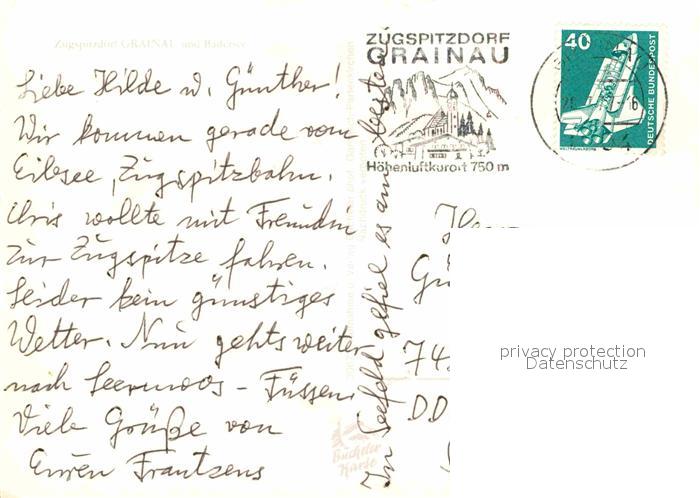 Zugspitzdorf GRAINAU und Badersee
Liebe Hilde u. Günther!
Wir kommen gerade vom
Eibsee, Zugspitzbahn.
Chris wollte mit Freunden
zur Zugspitze fahren.
Leider kein günstiges
Wetter. Nun gehts weiter
nach Leermoos - Füssen
Viele Grüße von
Euren Frantzens
In Seefeld gefiel es am besten
ZUGSPITZDORF
GRAINAU
Höhenluftkurort 750 m
40
DEUTSCHE BUNDESPOST
Gü
74
DD
privacy protection
Datenschutz
Bücheler
Karte